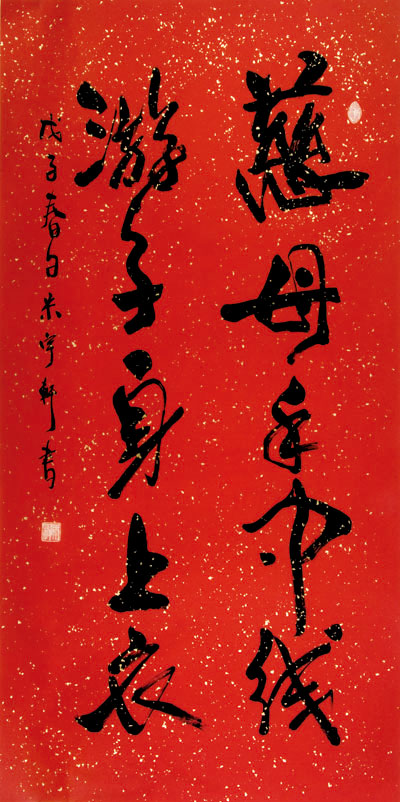 慈母手中线
游子身上衣
戊子春日朱宇轩书